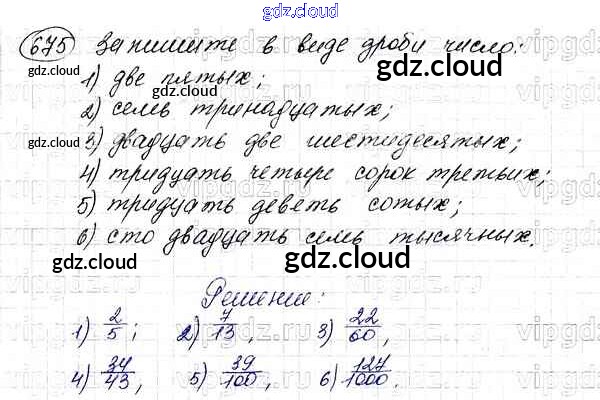 gdz.cloud
675 Запишите в виде дроби число:
gdz.cloud gdz.cloud
1) две пятых;
2) семь тринадцатых;
gdz.cloud gdz.cloud
3) двадцать две шестидесятых;
4) тридцать четыре сорок третьих;
5) тридцать девять сотых;
6) сто двадцать семь тысячных.
gdz.cloud gdz.cloud
Решение:
1) 2/5; 2) 7/13, 3) 22/60,
4) 34/43, 5) 39/100, 6) 127/1000.